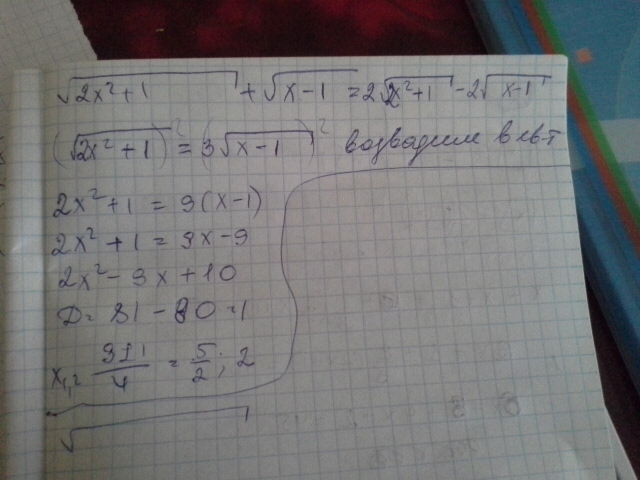 √(2x²+1) + √(x-1) = 2√(2x²+1) - 2√(x-1)
(√(2x²+1))² = (3√(x-1))² возводим в кв-т
2x²+1 = 9(x-1)
2x²+1 = 9x-9
2x²-9x+10
D = 81-80=1
x₁,₂ = (9±1)/4 = 5/2; 2
√